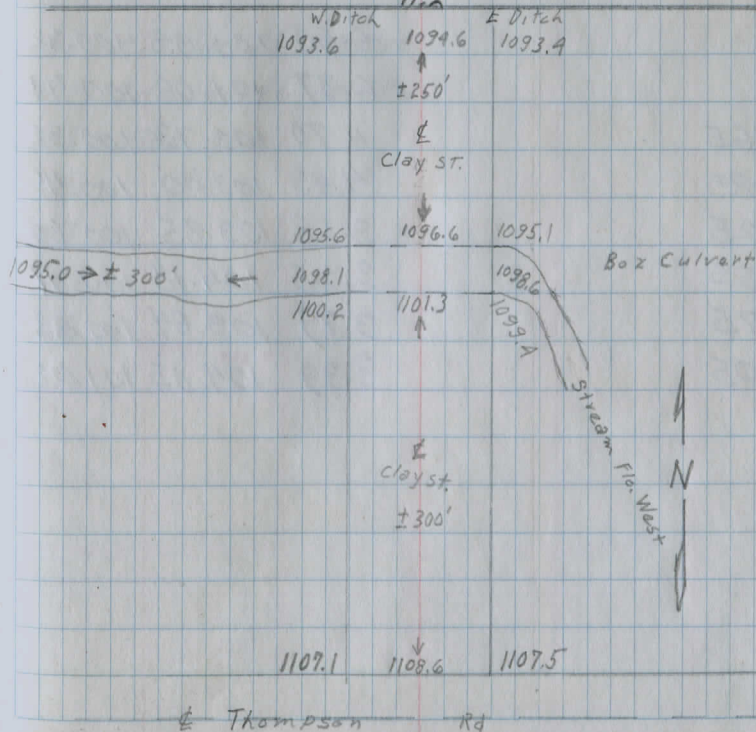 W. Ditch E Ditch
1093.6 1094.6 1093.4
±250'
℄
Clay ST.
1095.6 1096.6 1095.1
Box Culvert
1095.0 → ± 300' ← 1098.1 1098.6
1100.2 1101.3 1099.4
Stream Flo. West
N
℄
Clay St.
±300'
1107.1 1108.6 1107.5
℄ Thompson Rd